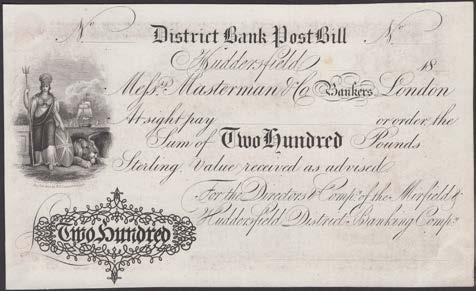 No District Bank Post Bill No
Huddersfield 18
Messrs Masterman & Co Bankers London
At sight pay or order, the
Sum of Two Hundred Pounds
Sterling, Value received as advised
For the Directors & Compy of the Mirfield &
Huddersfield District Banking Compy
Two Hundred